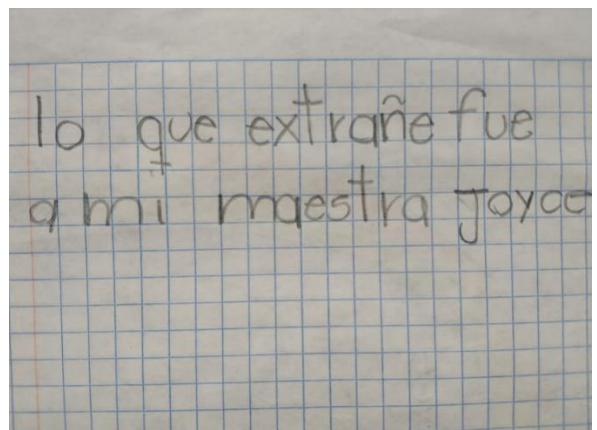 lo que extrañe fue
a mi maestra Joyce